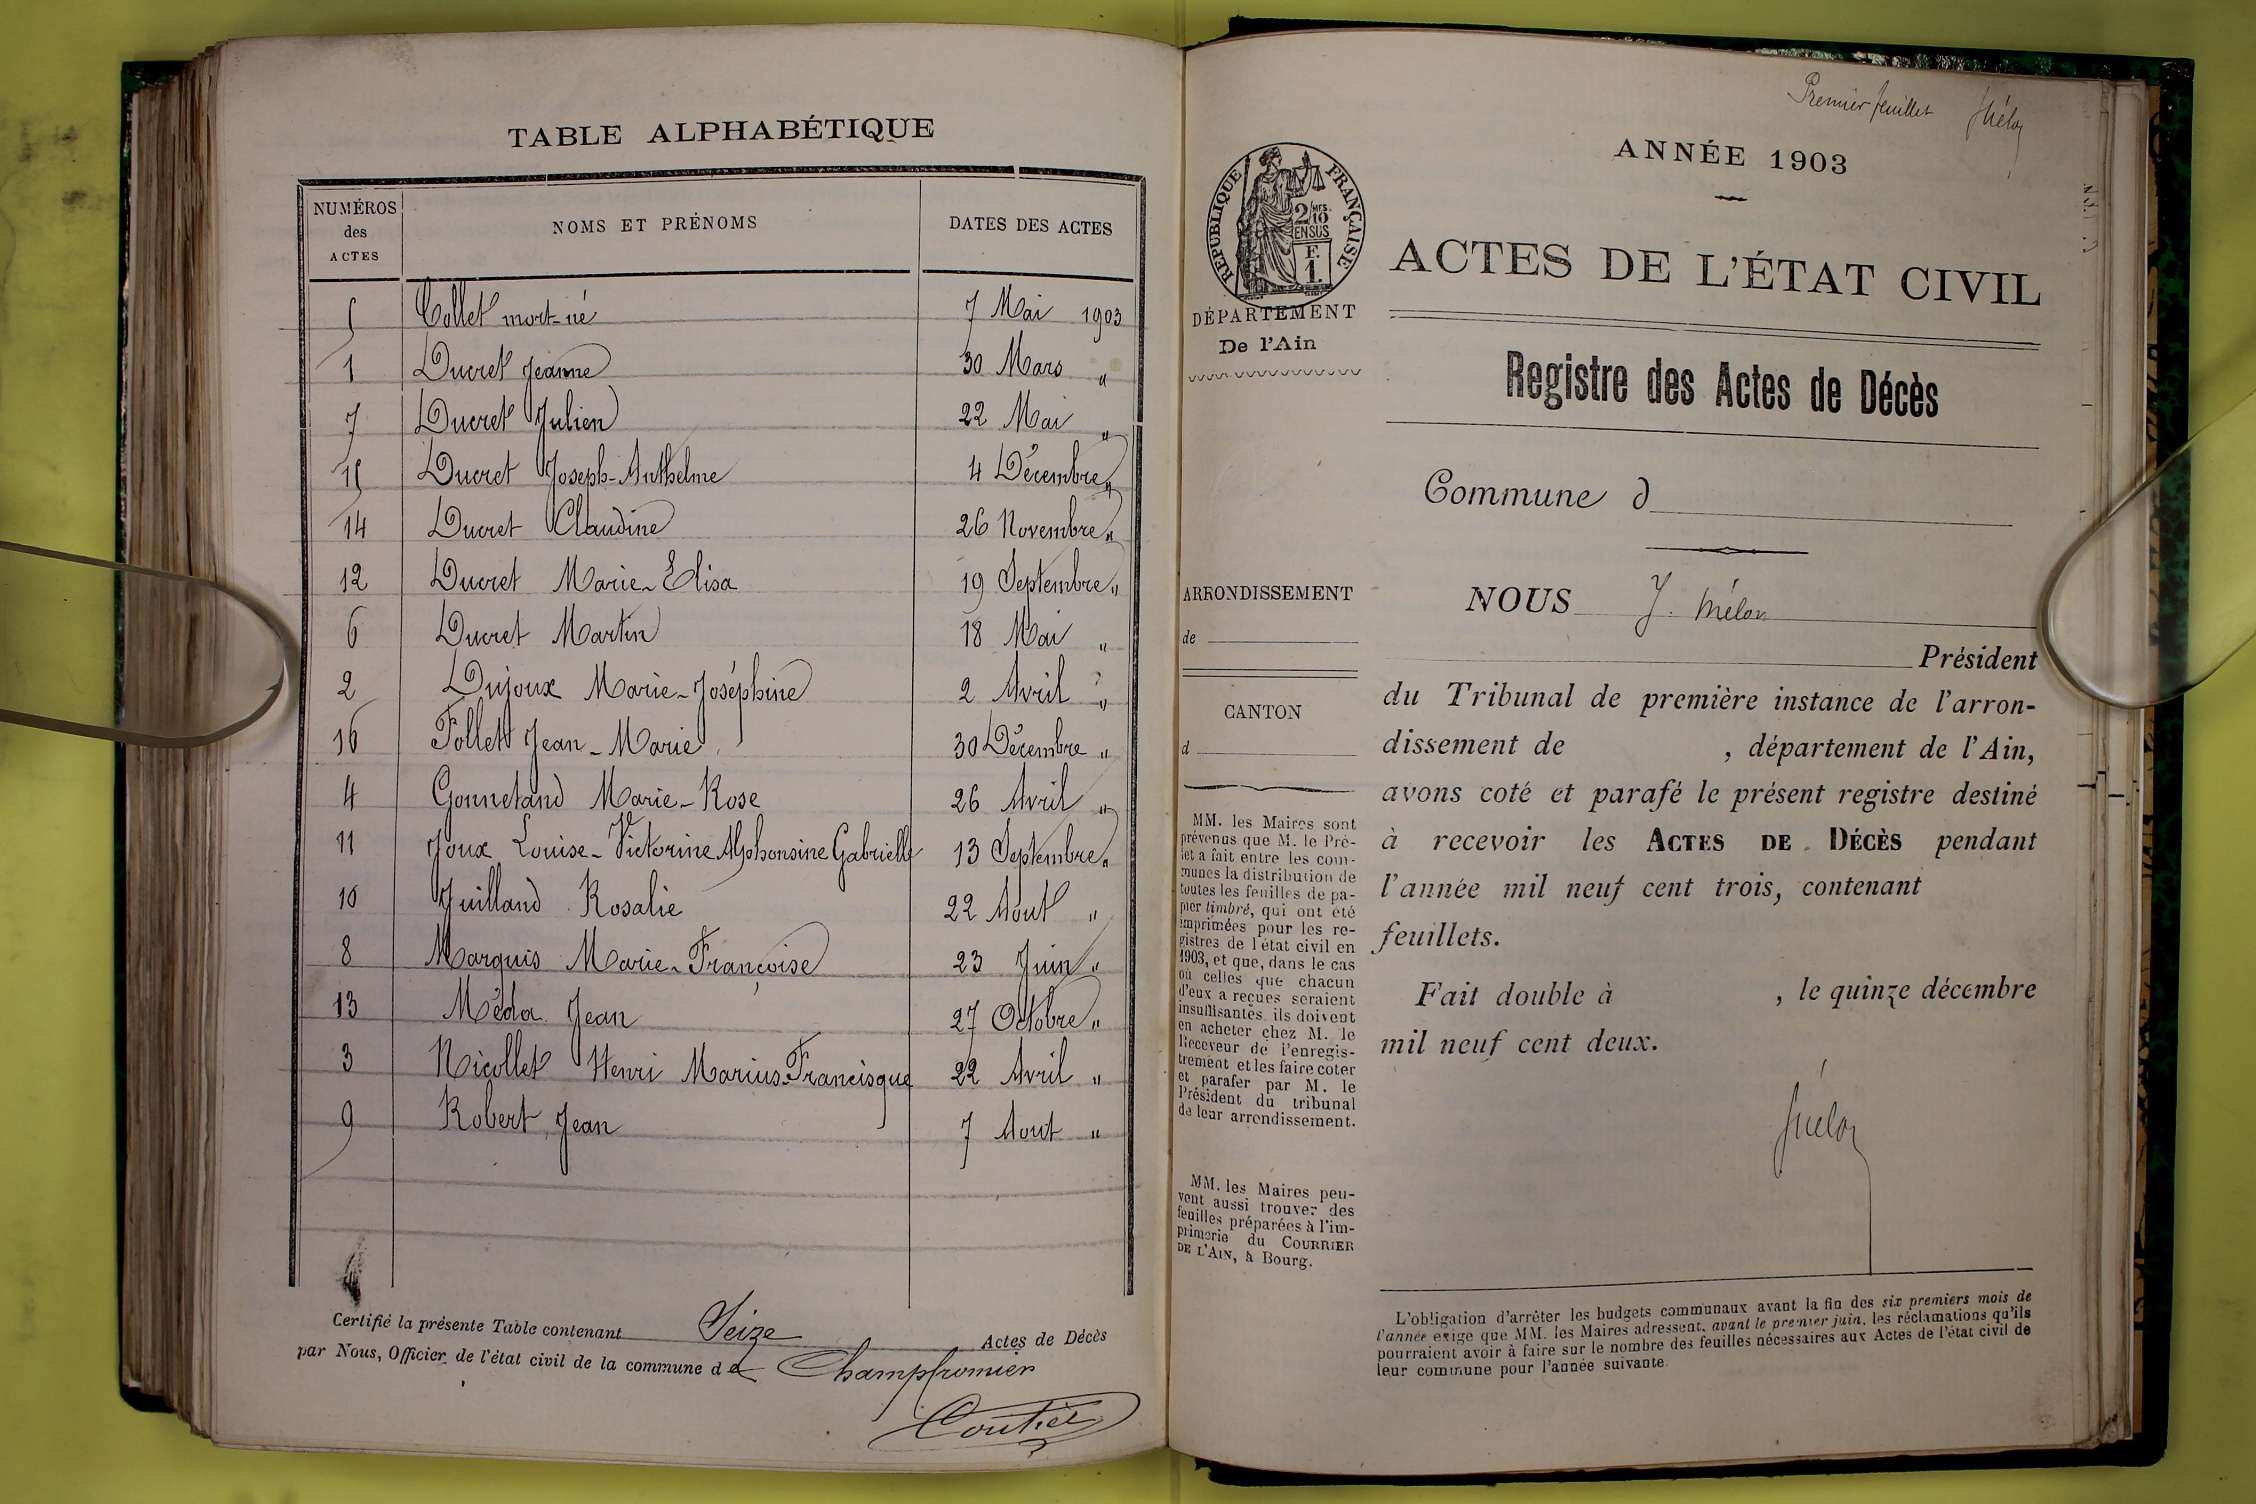 TABLE ALPHABÉTIQUE
NUMÉROS des ACTES NOMS ET PRÉNOMS DATES DES ACTES
5 Collet mort-né 7 Mai 1903
1 Ducret Jeanne 30 Mars "
7 Ducret Julien 22 Mai "
15 Ducret Joseph-Anthelme 4 Décembre "
14 Ducret Claudine 26 Novembre "
12 Ducret Marie-Elisa 19 Septembre "
6 Ducret Martin 18 Mai "
2 Dujoux Marie-Joséphine 2 Avril "
16 Follet Jean-Marie 30 Décembre "
4 Gonnetand Marie-Rose 26 Avril "
11 Joux Louise-Victorine Alphonsine Gabrielle 13 Septembre "
10 Juilland Rosalie 22 Aout "
8 Marquis Marie-Françoise 23 Juin "
13 Méda Jean 27 Octobre "
3 Nicollet Henri Marius-Francisque 22 Avril "
9 Robert Jean 7 Aout "
Certifié la présente Table contenant Seize Actes de Décès
par Nous, Officier de l'état civil de la commune d e Champfromier
Premier feuillet
ANNÉE 1903
RÉPUBLIQUE FRANÇAISE
2/10 EN SUS
F. 1.
DÉPARTEMENT
De l'Ain
ARRONDISSEMENT
de
CANTON
d
MM. les Maires sont
prévenus que M. le Pré-
fet a fait entre les com-
munes la distribution de
toutes les feuilles de pa-
pier timbré, qui ont été
imprimées pour les re-
gistres de l'état civil en
1903, et que, dans le cas
où celles que chacun
d'eux a reçues seraient
insuffisantes ils doivent
en acheter chez M. le
Receveur de l'enregis-
trement et les faire coter
et parafer par M. le
Président du tribunal
de leur arrondissement.
MM. les Maires peu-
vent aussi trouver des
feuilles préparées à l'im-
primerie du COURRIER
DE L'AIN, à Bourg.
ACTES DE L'ÉTAT CIVIL
Registre des Actes de Décès
Commune d
NOUS J.
Président
du Tribunal de première instance de l'arron-
dissement de , département de l'Ain,
avons coté et parafé le présent registre destiné
à recevoir les ACTES DE DÉCÈS pendant
l'année mil neuf cent trois, contenant
feuillets.
Fait double à , le quinze décembre
mil neuf cent deux.
L'obligation d'arrêter les budgets communaux avant la fin des six premiers mois de
l'année exige que MM. les Maires adressent, avant le premier juin, les réclamations qu'ils
pourraient avoir à faire sur le nombre des feuilles nécessaires aux Actes de l'état civil de
leur commune pour l'année suivante.